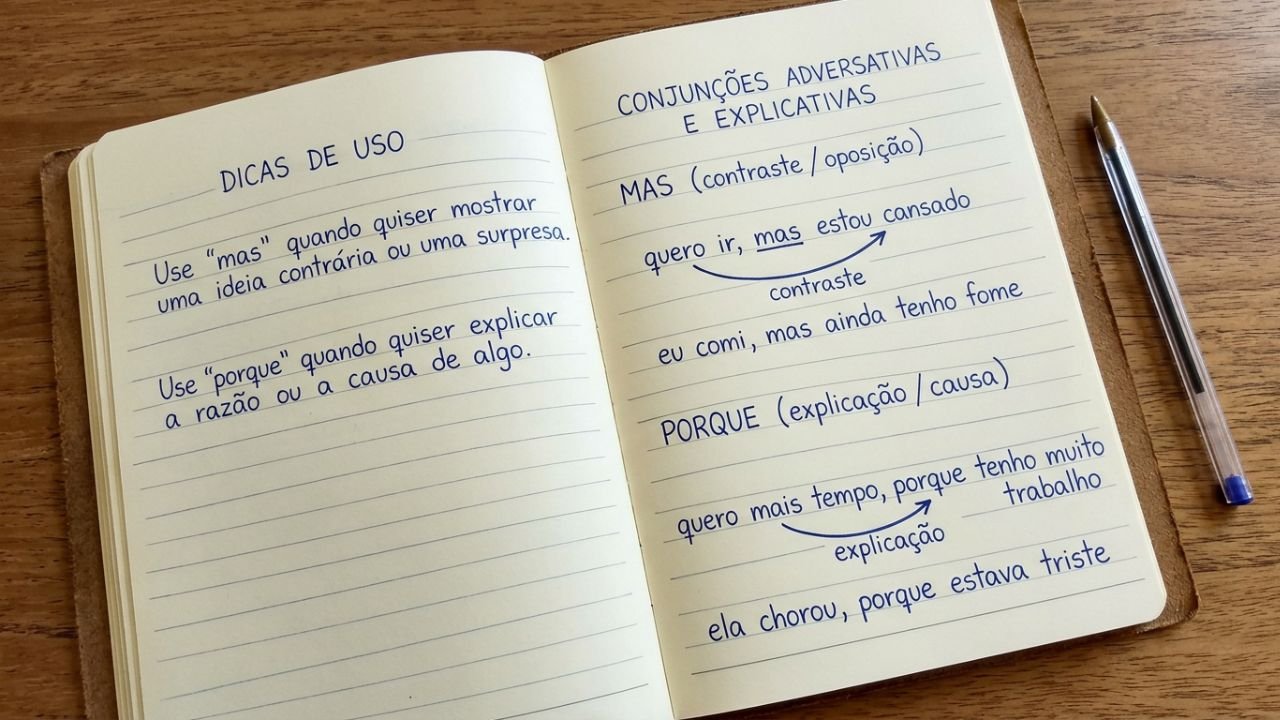 DICAS DE USO
Use "mas" quando quiser mostrar
uma ideia contrária ou uma surpresa.
Use "porque" quando quiser explicar
a razão ou a causa de algo.
CONJUNÇÕES ADVERSATIVAS
E EXPLICATIVAS
MAS (contraste / oposição)
quero ir, mas estou cansado
contraste
eu comi, mas ainda tenho fome
PORQUE (explicação / causa)
quero mais tempo, porque tenho muito
trabalho
explicação
ela chorou, porque estava triste